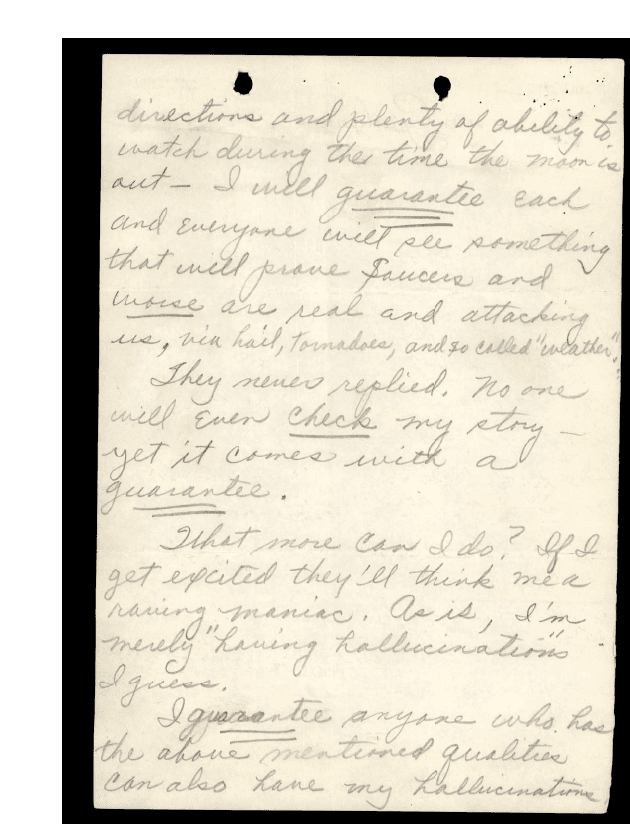 directions and plenty of ability to
watch during the time the moon is
out - I will guarantee each
and everyone will see something
that will prove Saucers and
worse are real and attacking
us, via hail, tornadoes, and so called "weather".
They never replied. No one
will even check my story -
yet it comes with a
guarantee.
What more can I do? If I
get excited they'll think me a
raving maniac. As is, I'm
merely "having hallucinations"
I guess.
I guarantee anyone who has
the above mentioned qualities
can also have my hallucinations